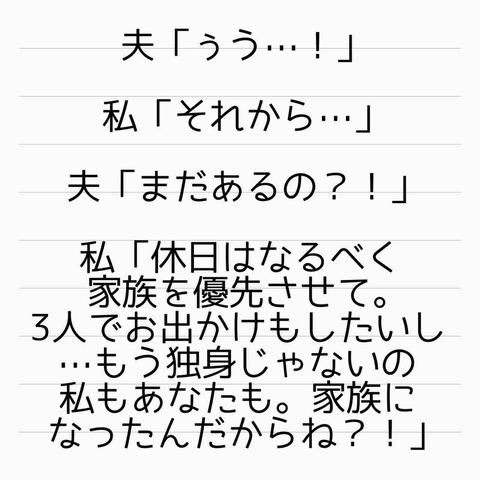 夫「ぅう…！」
私「それから…」
夫「まだあるの？！」
私「休日はなるべく
家族を優先させて。
3人でお出かけもしたいし
…もう独身じゃないの
私もあなたも。家族に
なったんだからね？！」